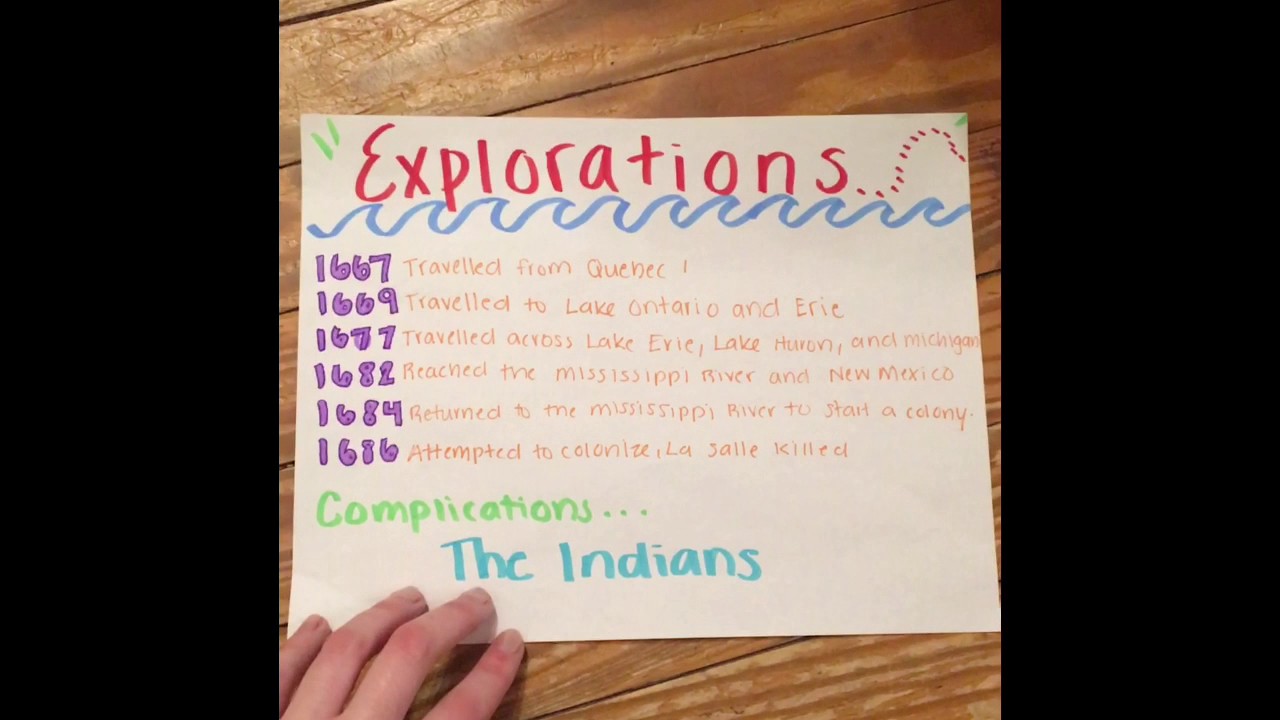 Explorations...
1667 Travelled from Quebec !
1669 Travelled to Lake Ontario and Erie
1677 Travelled across Lake Erie, Lake Huron, and michigan
1682 Reached the mississippi River and New Mexico
1684 Returned to the mississippi River to start a colony.
1686 Attempted to colonize, La Salle killed
Complications...
The Indians